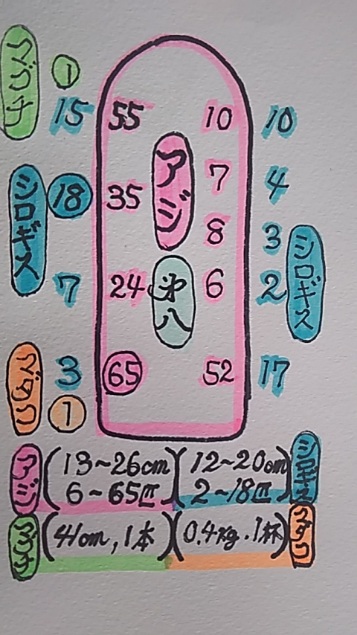 マゴチ ①
15 55 10 10
アジ
シロギス ⑱ 35 7 4
8 3
シロギス
7 24 弁八 6 2
マダコ 3 65 52 17
①
アジ (13~26cm 6~65匹) (12~20cm 2~18匹) シロギス
マゴチ (41cm,1本) (0.4kg.1杯) マダコ